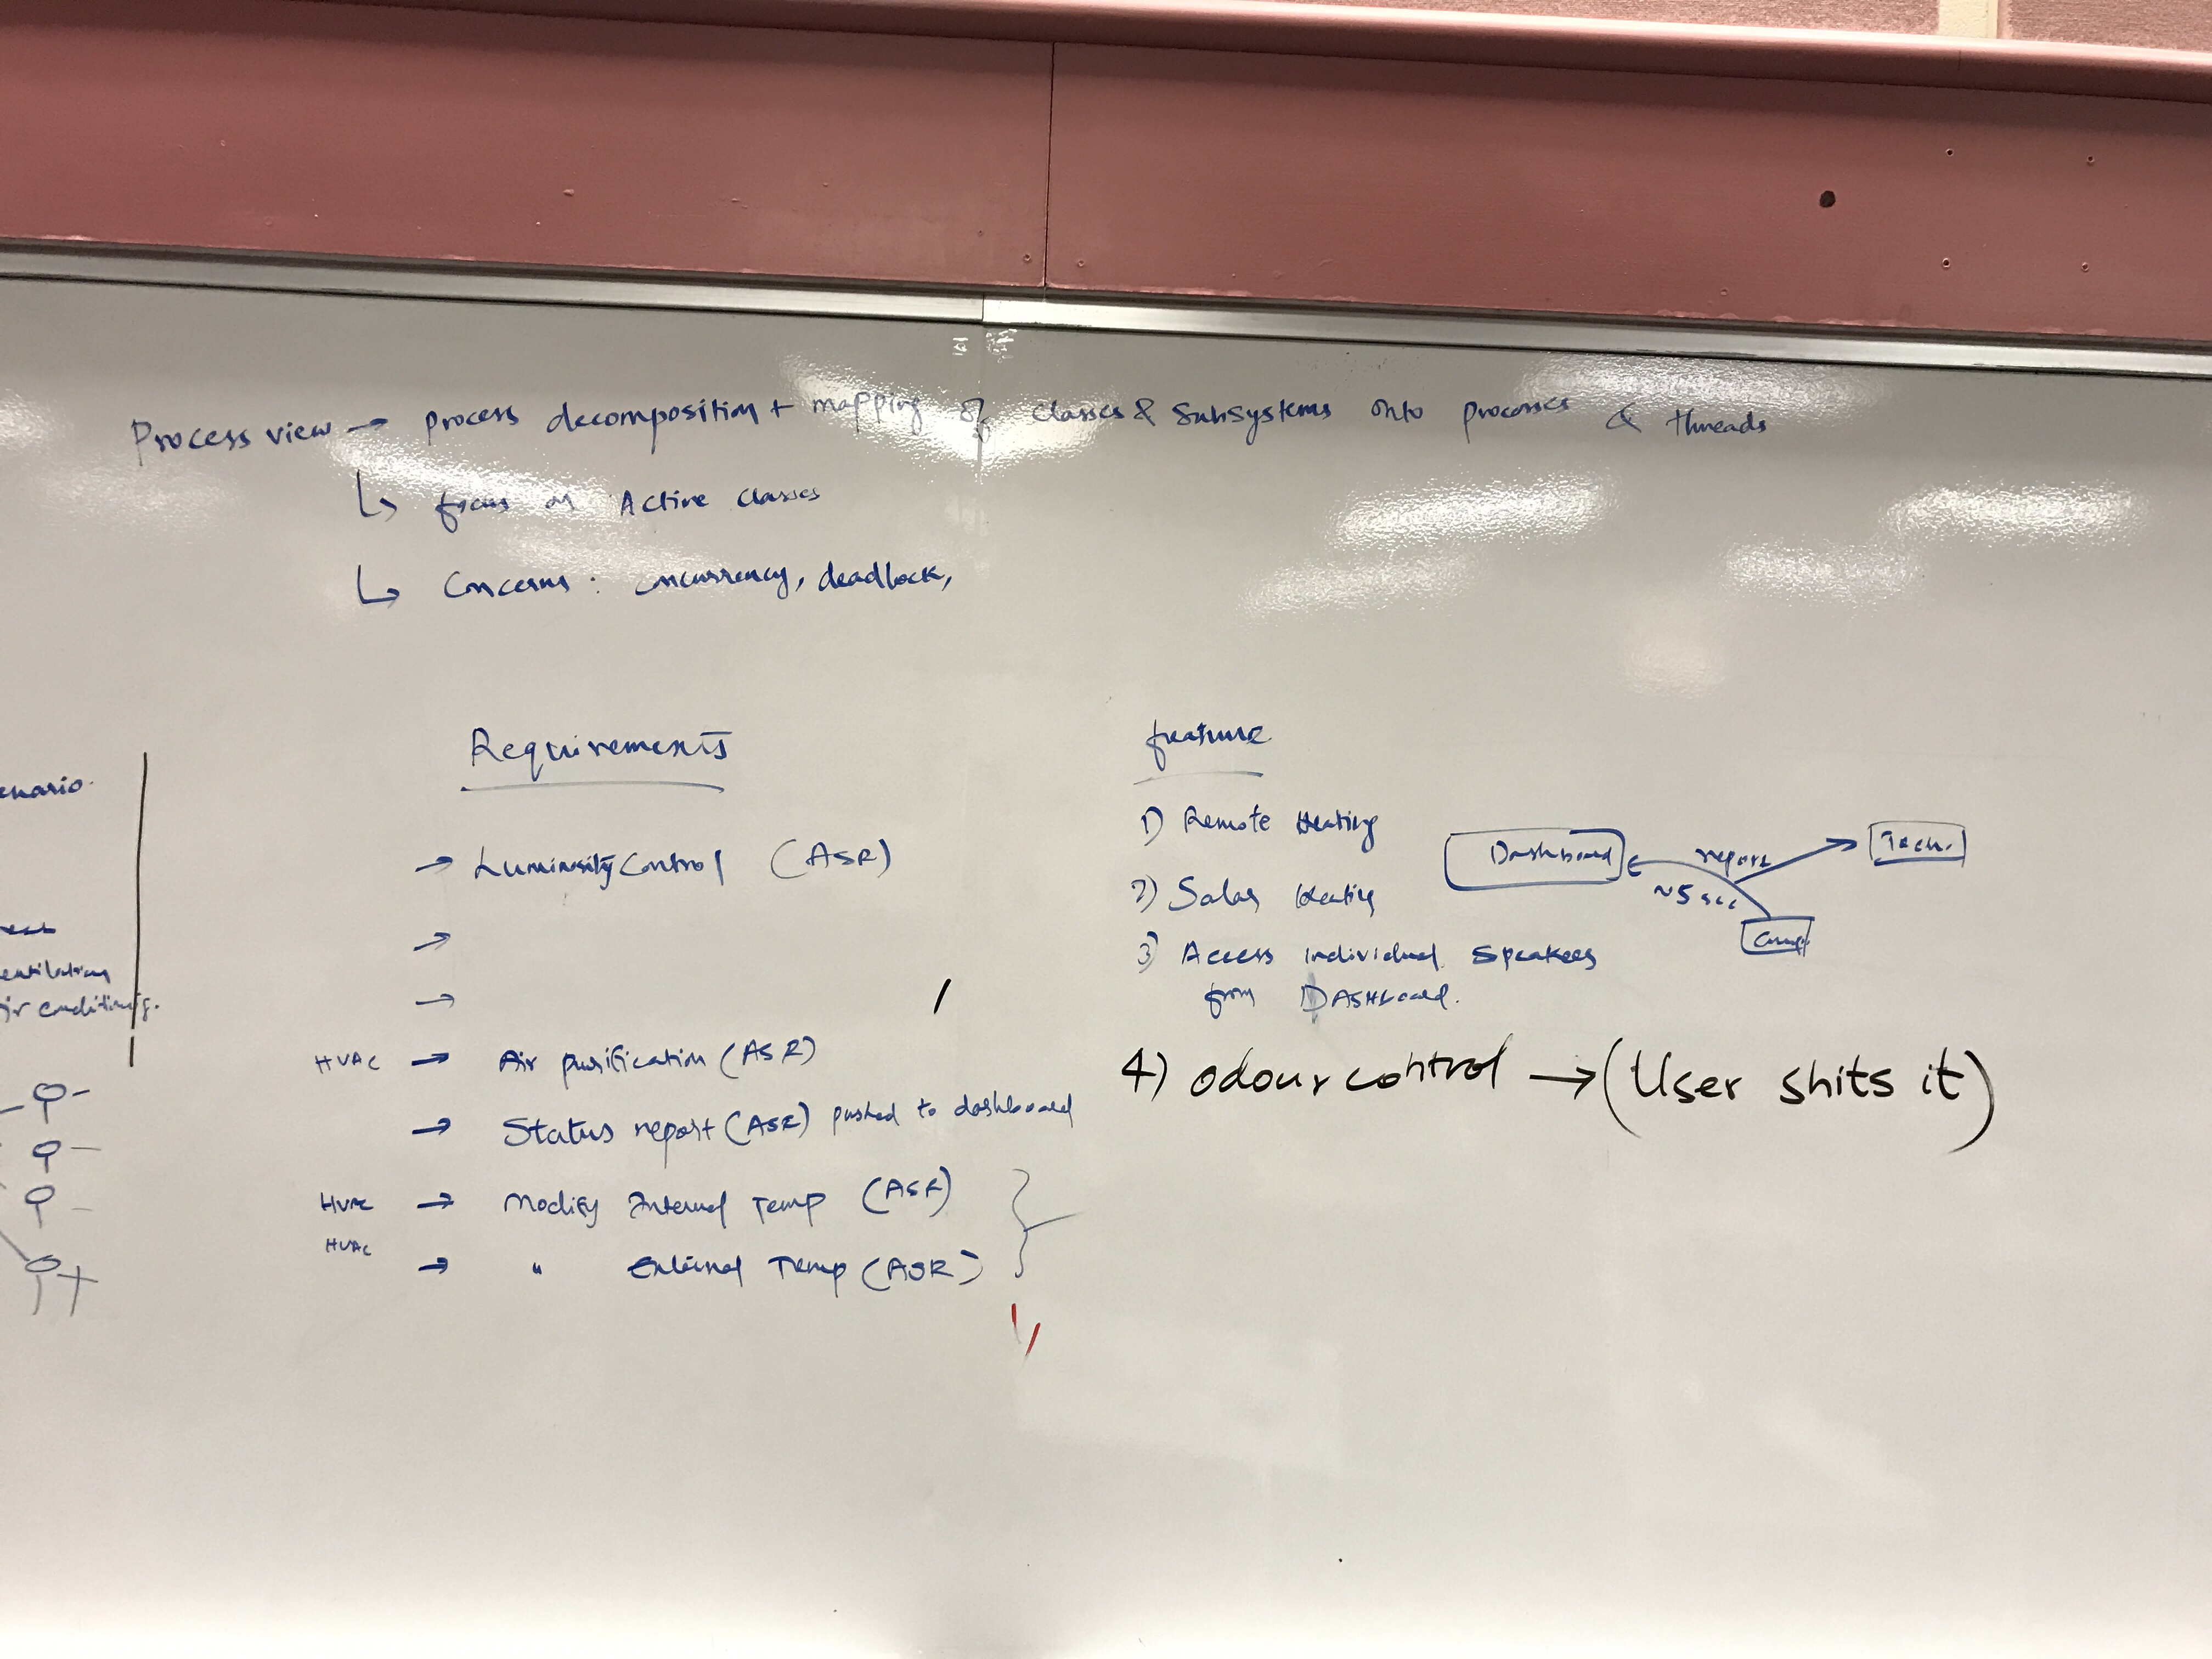 Process view → process decomposition + mapping of classes & subsystems onto processes & threads
↳ focus on Active classes
↳ Concerns: concurrency, deadlock,
enario.
Requirements
→ Luminosity Control (ASR)
→
→
HVAC → Air purification (ASR)
→ Status report (ASR) pushed to dashboard
HVAC → Modify Internal Temp (ASR)
HVAC → " External Temp (ASR)
feature
1) Remote Heating
2) Solar Heating
3) Access individual speakers
from DASHboard.
4) odour control → (User shits it)
Dashboard
report
~5 sec
Tech.
entilation
ir conditioning.